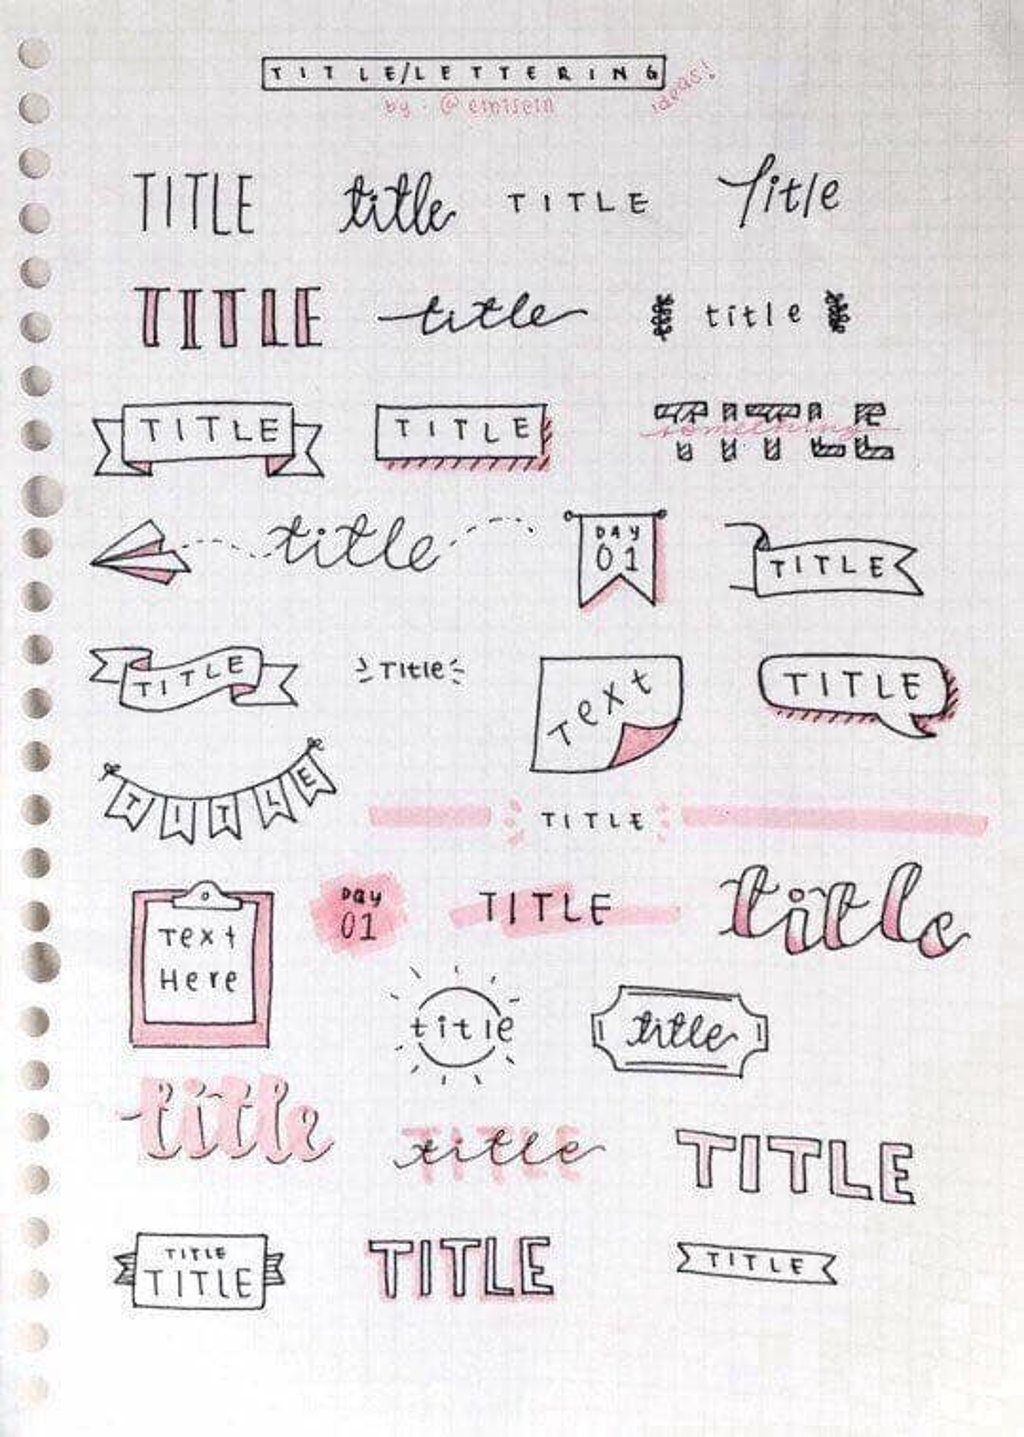 TITLE/LETTERING
ideas!
by. @emisein
TITLE title TITLE Title
TITLE title title
TITLE TITLE TITLE something
title DAY 01 TITLE
TITLE Title Text TITLE
TITLE
TITLE
Text Here
DAY 01
TITLE
title
title
title
title
title TITLE
TITLE
TITLE TITLE
TITLE
TITLE